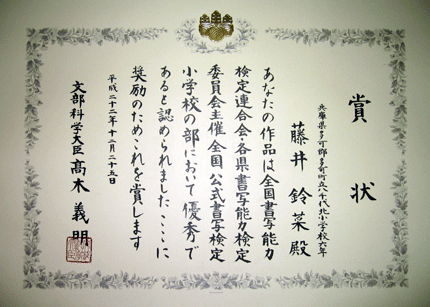 賞状
兵庫県多可郡多可町立八千代北小学校六年
藤井鈴菜殿
あなたの作品は全国書写能力
検定連合会・各県書写能力検定
委員会主催全国公式書写検定
小学校の部において優秀で
あると認められましたここに
奨励のためこれを賞します
平成二十二年十二月二十五日
文部科学大臣髙木義明